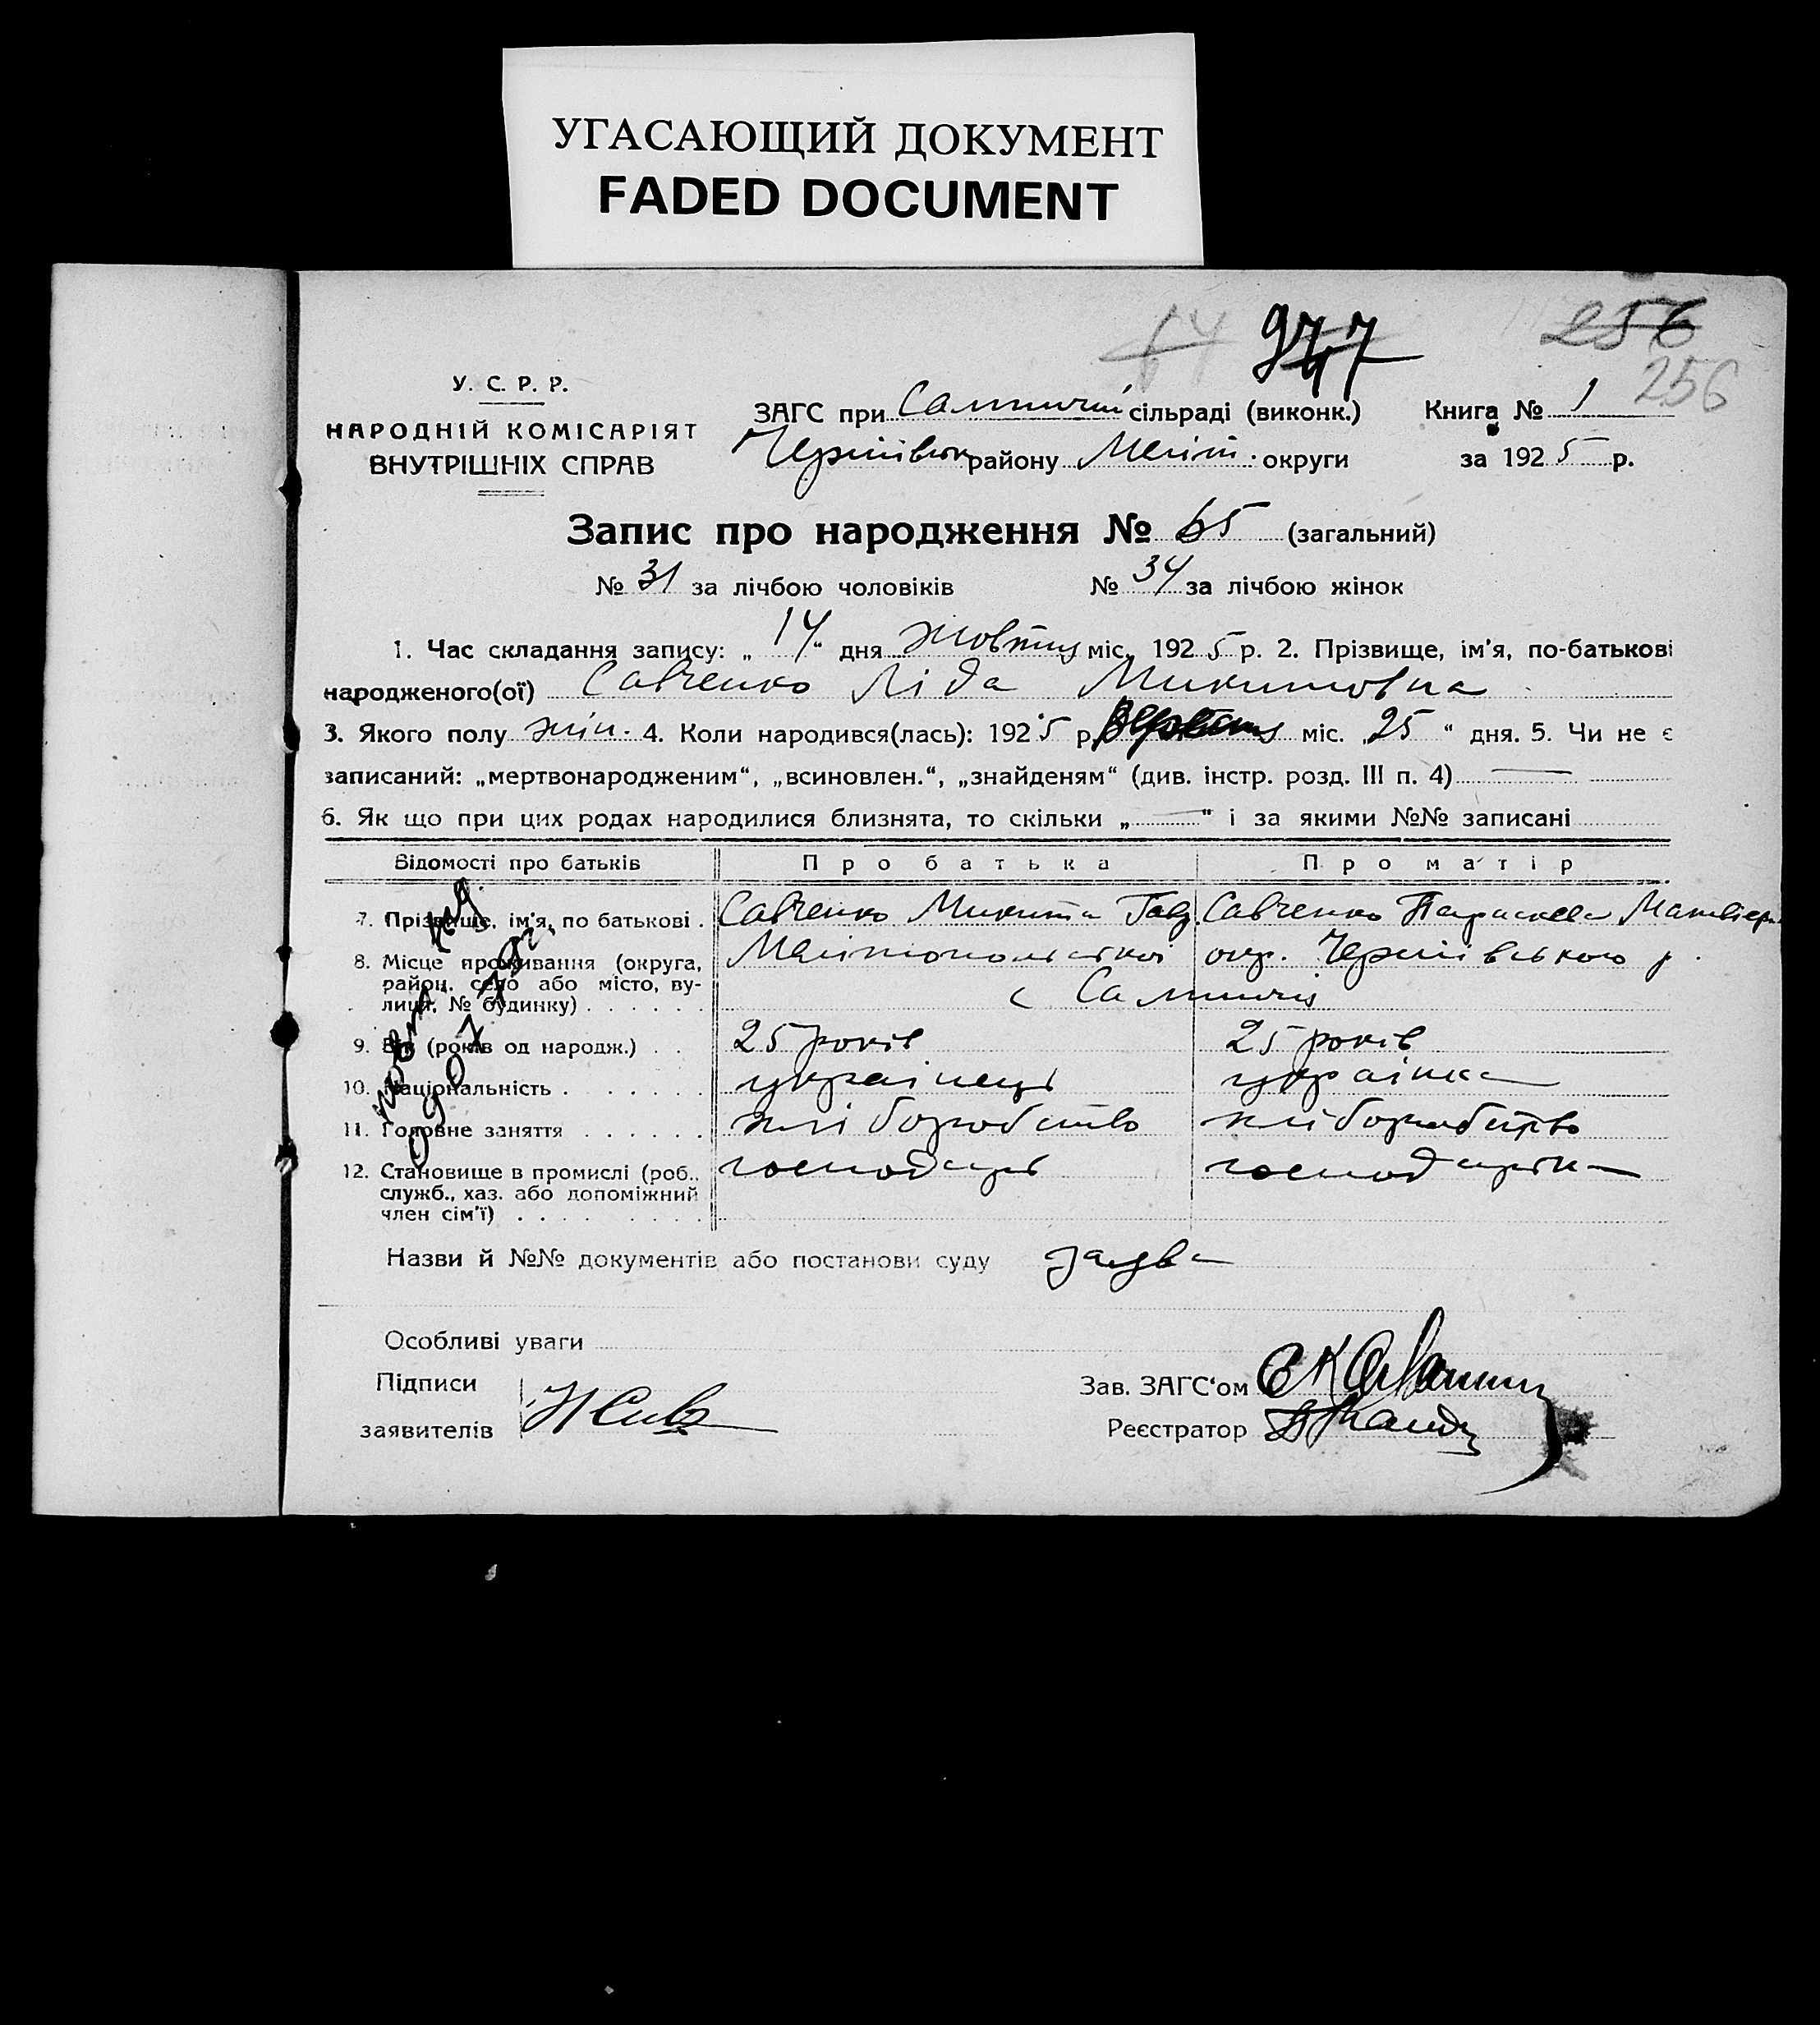 УГАСАЮЩИЙ ДОКУМЕНТ
FADED DOCUMENT
64 947 256
256
У. С. Р. Р.
НАРОДНІЙ КОМІСАРІЯТ
ВНУТРІШНІХ СПРАВ
ЗАГС при сільраді (виконк.) Книга № 1
району Меліт. округи за 1925 р.
Запис про народження № 65 (загальний)
№ 31 за лічбою чоловіків № 34 за лічбою жінок
1. Час складання запису: „14“ дня жовтня міс. 1925 р. 2. Прізвище, ім'я, по-батькові
народженого(ої) Савченко Ліда Микитовна
3. Якого полу жін. 4. Коли народився(лась): 1925 р. міс. 25 “ дня. 5. Чи не є
записаний: „мертвонародженим“, „всиновлен.“, „знайденям“ (див. інстр. розд. III п. 4) —
6. Як що при цих родах народилися близнята, то скільки „—“ і за якими №№ записані
Відомості про батьків Про батька Про матір
7. Прізвище, ім'я, по батькові . Савченко Микита Гавр. Савченко Параскева
8. Місце проживання (округа, Мелітопольської окр. Чернігівського р.
район, село або місто, ву-
лиця, № будинку) . . . . . . с
9. Вік (років од народж.) . . 25 років 25 років
10. Національність . . . . . . . українець українка
11. Головне заняття . . . . . . хліборобство хліборобство
12. Становище в промислі (роб., господарь господарька
служб., хаз. або допоміжний
член сім'ї) . . . . . . . .
Назви й №№ документів або постанови суду заява
Особливі уваги
Підписи Зав. ЗАГС'ом
заявителів Реєстратор